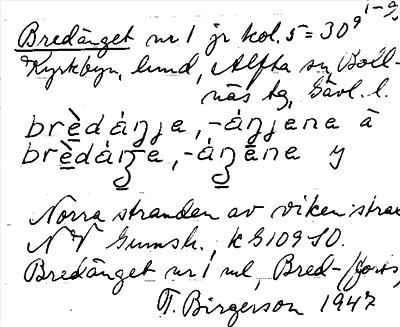 Bredänget nr 1 jr kol. 5 = 30 g 1-a,
Kyrkbyn, lund, Alfta sn, Boll-
näs tg, Gävl. l.
brèdáŋja, -áŋjena å
brèdáŋa, -áŋëna y
Norra stranden av viken strax
NV Gumsh., k G109 SO.
Bredänget nr 1 ml, Bred- /forts,
T. Birgerson 1947